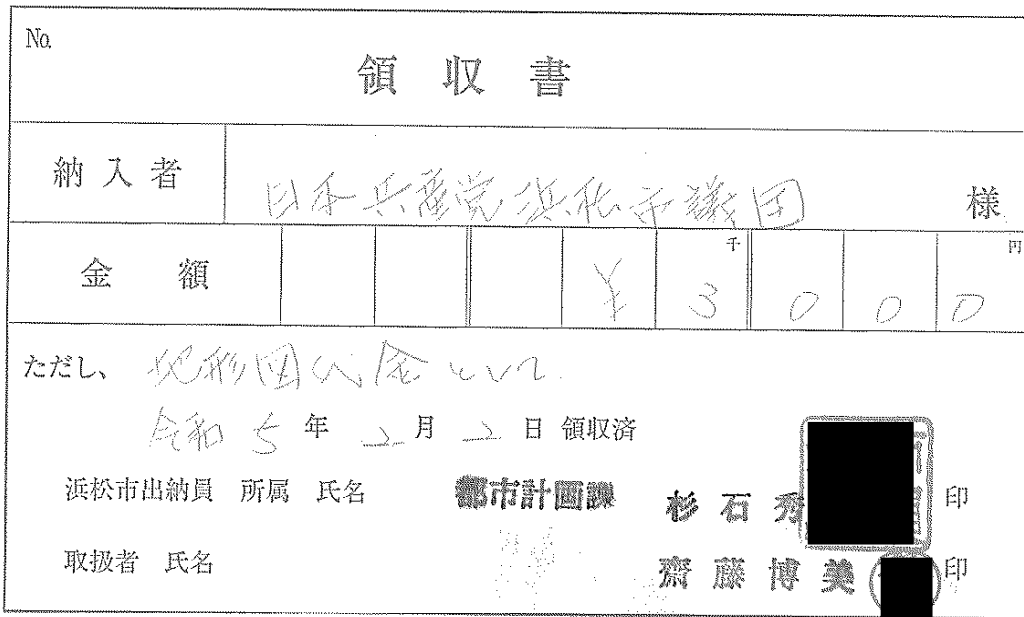 No.
領収書
納入者 日本共産党浜松市議団 様
金額 ¥3000 千 円
ただし、地形図代金として
令和5年2月2日領収済
浜松市出納員 所属 氏名 都市計画課 杉石秀 印
取扱者 氏名 齋藤博美 印